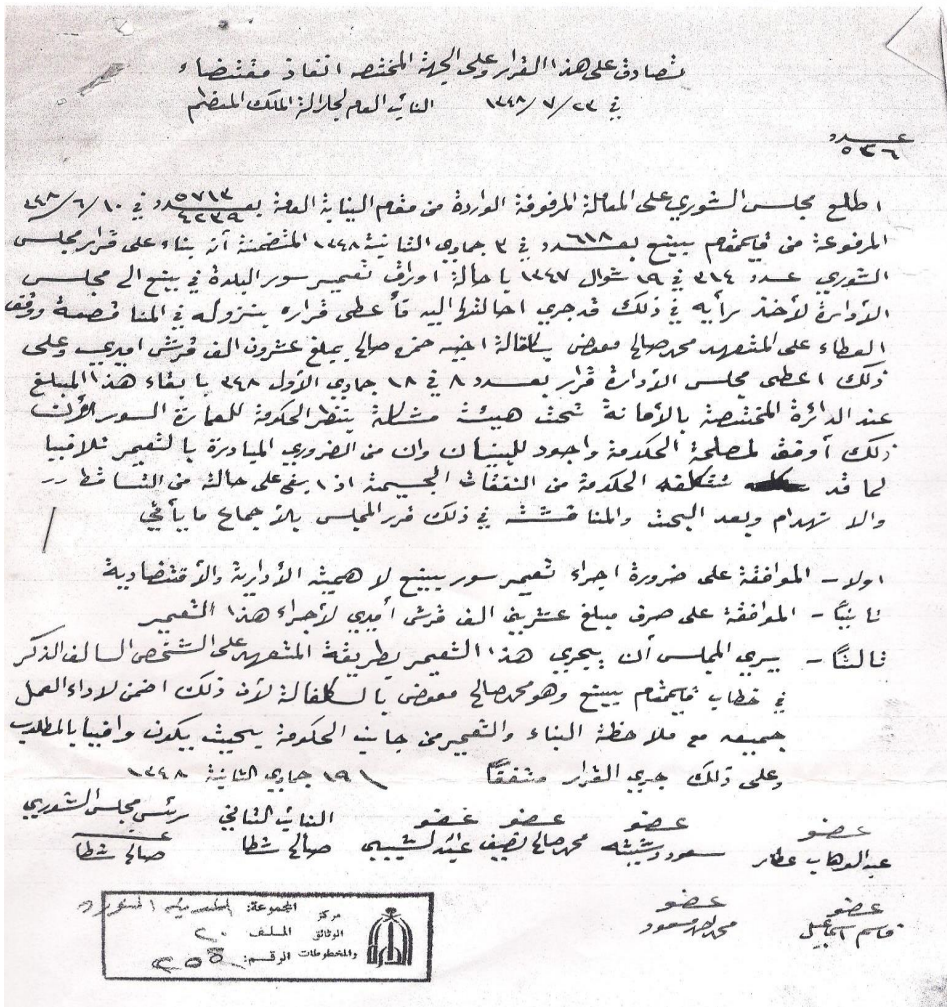 تصادق على هذا القرار وعلى الجهة المختصه اتفاذ مقتضاه
في ٢٣/٧/١٣٤٨ النائب العام لجلالة الملك المعظم
عدد
٥٣٦
اطلع مجلس الشوري على المعاملة المرفوقة الواردة من مقام النيابة العامة بعدد ٥٧١٣/٤٢٣٩ في ١٠/٦/٣٤٨
المرفوعة من قايمقام ينبع بعدد ٦١٨ في ٣ جمادي الثانية ١٣٤٨ المتضمنة أنه بناء على قرار مجلس
الشوري عدد ٣١٤ في ١٩ شوال ١٣٤٧ باحالة اوراق تعمير سور البلدة في ينبع الى مجلس
الأدارة لأخذ رأيه في ذلك قد جري احالتها اليه فأعطى قراره بنزوله في المناقصة ووقف
العطاء على المتعهد محمد صالح معوض بكفالة اخيه حمزه صالح بمبلغ عشرون الف قرش اميري وعلى
ذلك اعطى مجلس الأدارة قرار بعدد ٨ في ١٨ جمادي الأول ٣٤٨ بابقاء هذا المبلغ
عند الدائرة المختصة بالأمانة تحت هيئة مشكلة بنظر الحكومة للعمارة السور لأن
ذلك أوفق لمصلحة الحكومة واجود للبنيان وان من الضروري المبادرة بالتعمير تلافيا
لما قد ستتكلفه الحكومة من النفقات الجسيمة اذا بقي على حالته من التساقط
والا تهدام وبعد البحث والمناقشة في ذلك قرر المجلس بالأجماع ما يأتي
اولا - الموافقة على ضرورة اجراء تعمير سور ينبع لاهميته الأدارية والأقتصادية
ثانيًا - الموافقة على صرف مبلغ عشرين الف قرش أميري لأجراء هذا التعمير
ثالثًا - يري المجلس أن يجري هذا التعمير بطريقة المتعهد على الشخص السالف الذكر
في خطاب قايمقام ينبع وهو محمد صالح معوض بالكفالة لأن ذلك اضمن لاداء العمل
جميعه مع ملاحظة البناء والتعمير من جانب الحكومة بحيث يكون وافيا بالمطلوب
وعلى ذلك جري القرار متفقًا ١٩ جمادي الثانية ١٣٤٨
عضو عضو عضو عضو النائب الثاني رئيس مجلس الشوري
عبد الوهاب عطار سعود دشيشه محمد صالح نصيف عبد الله الشيبي صالح شطا صالح شطا
عضو عضو
قاسم اسماعيل محمد سعود
مركز الوثائق والمخطوطات
الدارة
المجموعة:
الملف ٢٠
الرقم: ٢٥٥